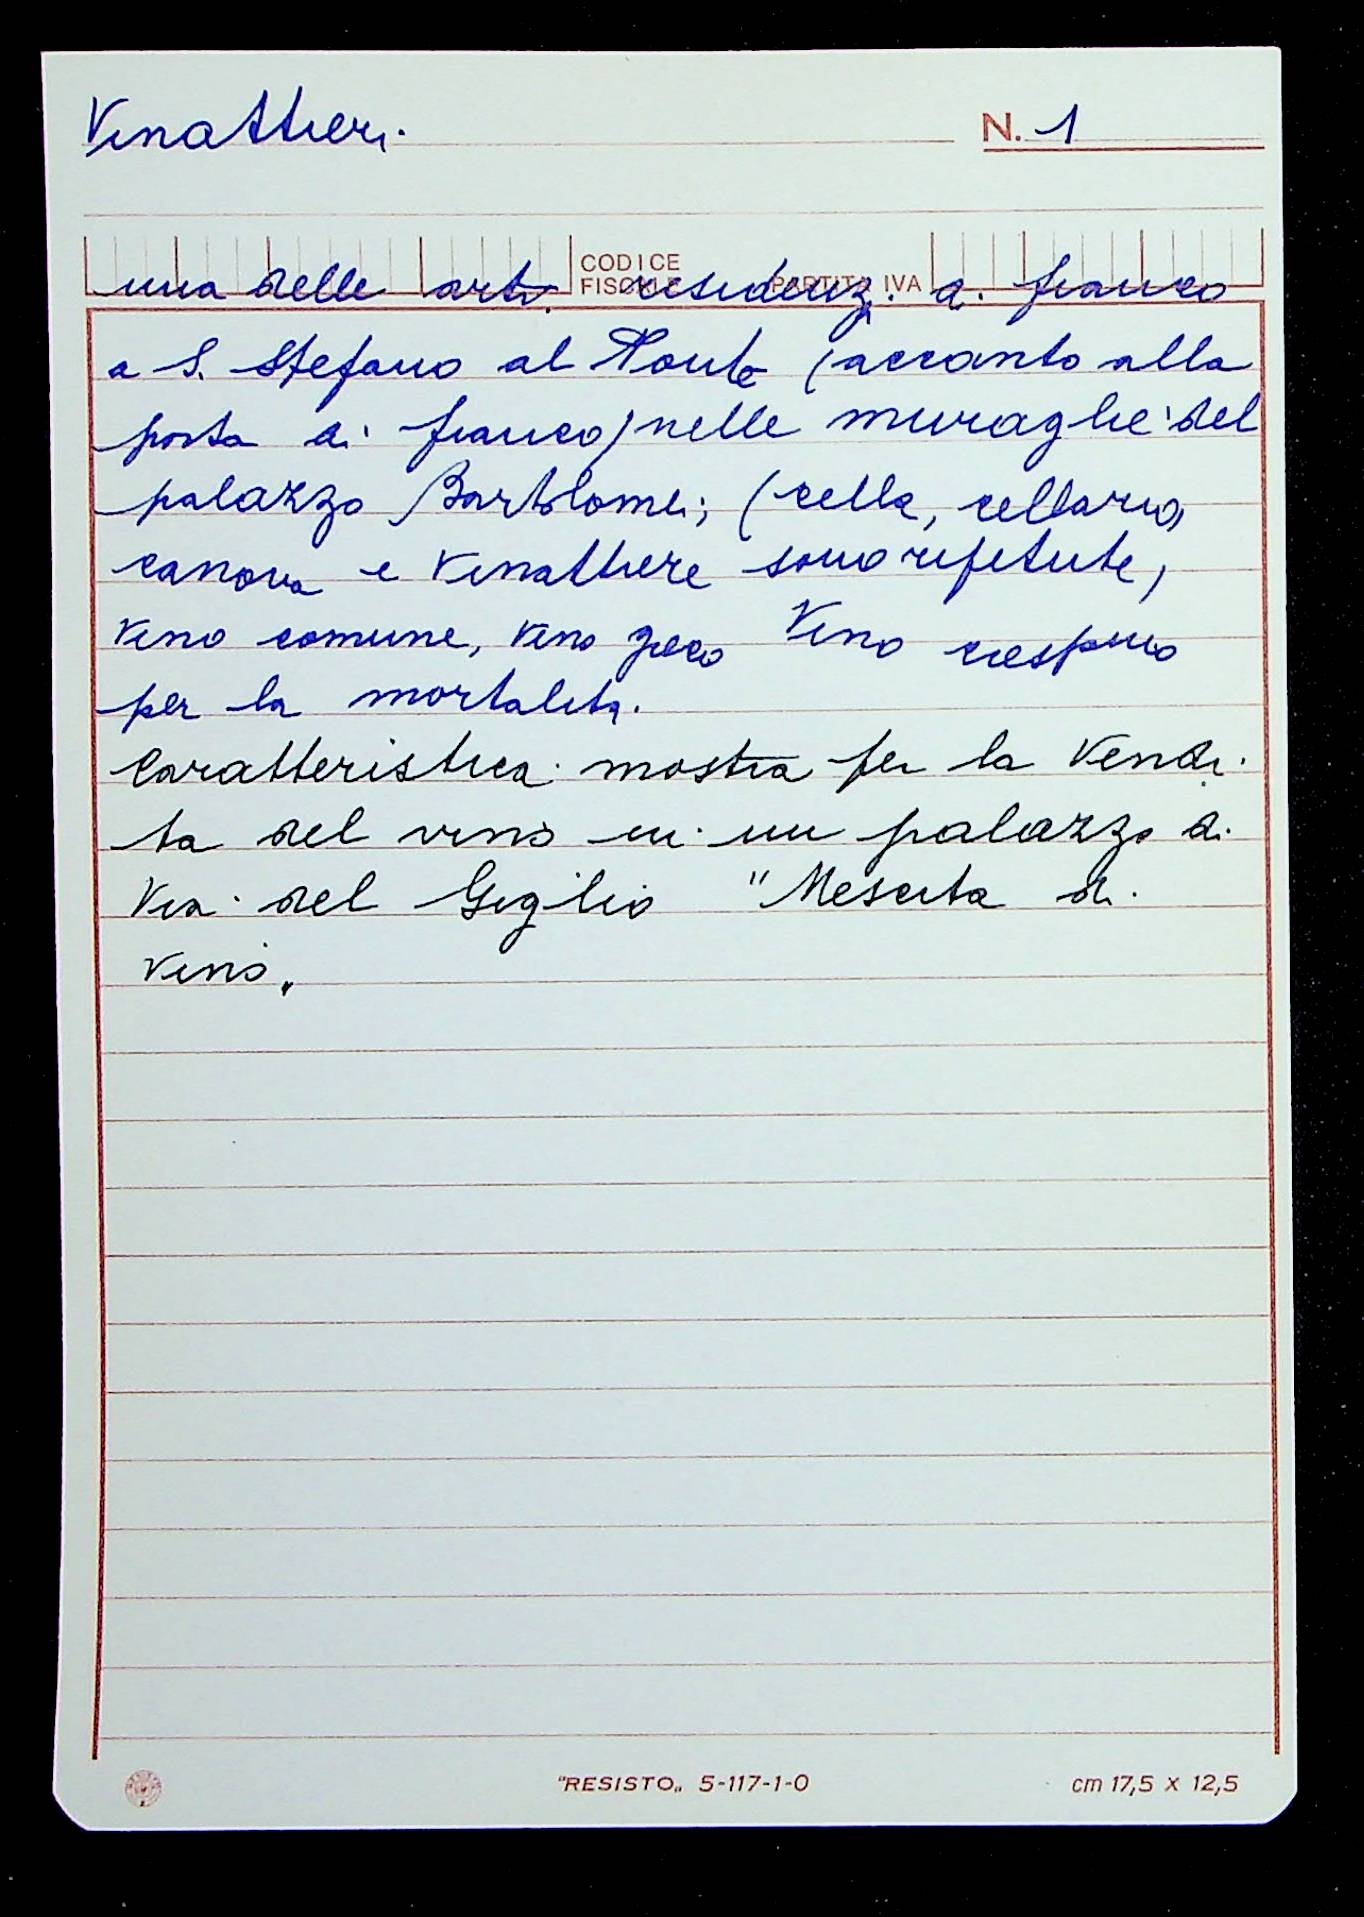 Vinattieri.
N. 1
CODICE
FISCALE
PARTITA IVA
una delle arti residenz. di fianco
a S. Stefano al Ponte (accanto alla
porta di fianco) nelle muraglie del
palazzo Bartolomei; (cella, cellario,
canova e Vinattiere sono ripetute,
Vino comune, Vino greco Vino crespino
per la mortalità.
Caratteristica mostra per la Vendi-
ta del vino in un palazzo di
Via del Giglio "Mescita di
Vino.
"RESISTO„ 5-117-1-0
cm 17,5 x 12,5